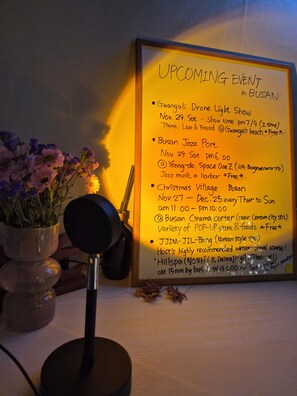 UPCOMING EVENT
in BUSAN
• Gwangali Drone Light Show
Nov. 29. Sat - show time pm 7/9 (2 time)
Theme: Love & Friend @ Gwangali beach *Free*
• Busan Jazz Port
Nov. 29. Sat pm 6:00
Jazz music in harbor *Free*
• Christmas Village Busan
Nov. 27 – Dec. 25 every Thur to Sun
am 11:00 - pm 10:00
@ Busan Cinema center
Variety of POP-UP store & foods *Free*
• JJIM-JIL-Bang (Korean style spa)
Host's highly recommended
"Hillspa
15 min by bus